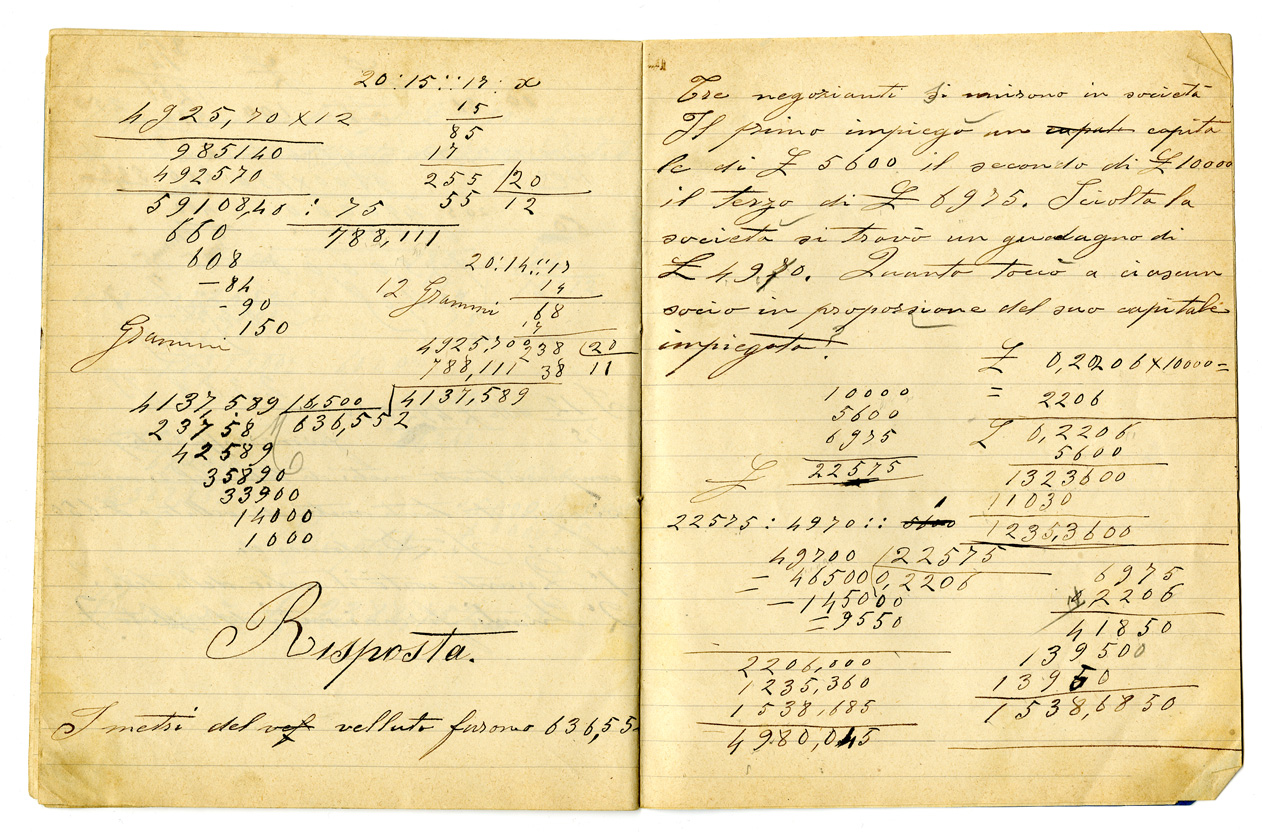 20:15::17:x
4925,70 x 12
985140
492570
59108,40 : 75
788,111
660
608
-84
-90
150
15
85
17
255 20
55 12
20:14::17
14
68
17
238 20
38 11
12 Grammi
Grammi
4925,700
788,111
4137,589
4137,589 6,500
636,552
23758
42589
35890
33900
14000
1000
Risposta.
I metri del velluto furono 636,55
Tre negozianti si unirono in società
Il primo impiegò un capita
le di £ 5600 il secondo di £ 10000
il terzo di £ 6975. Sciolta la
società si trovò un guadagno di
£ 4980. Quanto toccò a ciascun
socio in proporzione del suo capitale
impiegato?
10000
5600
6975
£ 22575
22575 : 4970 :: 1
49700 22575
= 46500 0,2206
- 145000
= 9550
2206,000
1235,360
1538,685
4980,045
£ 0,2206 x 10000 =
= 2206
£ 0,2206
5600
1323600
11030
1235,3600
6975
2206
41850
139500
13950
1538,6850